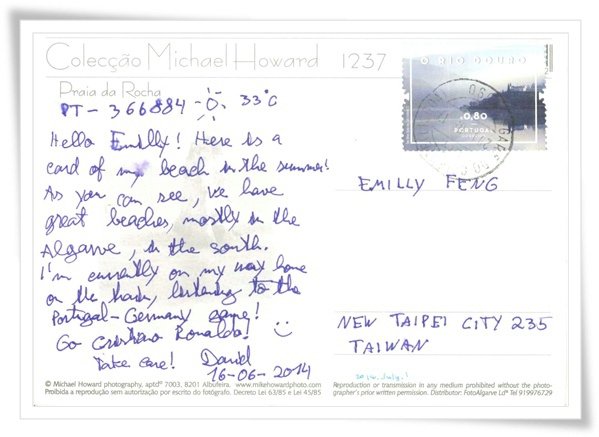 Colecção Michael Howard 1237
Praia da Rocha
PT-366884 33°C
Hello Emilly! Here is a
card of my beach in the summer!
As you can see, we have
great beaches, mostly in the
Algarve, in the south.
I'm currently on my way home
on the train, listening to the
Portugal-Germany game!
Go Cristiano Ronaldo!
Take care! David
16-06-2014
O RIO DOURO
0,80
PORTUGAL
EMILLY FENG
NEW TAIPEI CITY 235
TAIWAN
2014. July.1
© Michael Howard photography, aptdº 7003, 8201 Albufeira. www.mikehowardphoto.com
Proibida a reprodução sem autorização por escrito do fotógrafo. Decreto Lei 63/85 e Lei 45/85
Reproduction or transmission in any medium prohibited without the photo-
grapher's prior written permission. Distributor: FotoAlgarve Ldª Tel 919976729